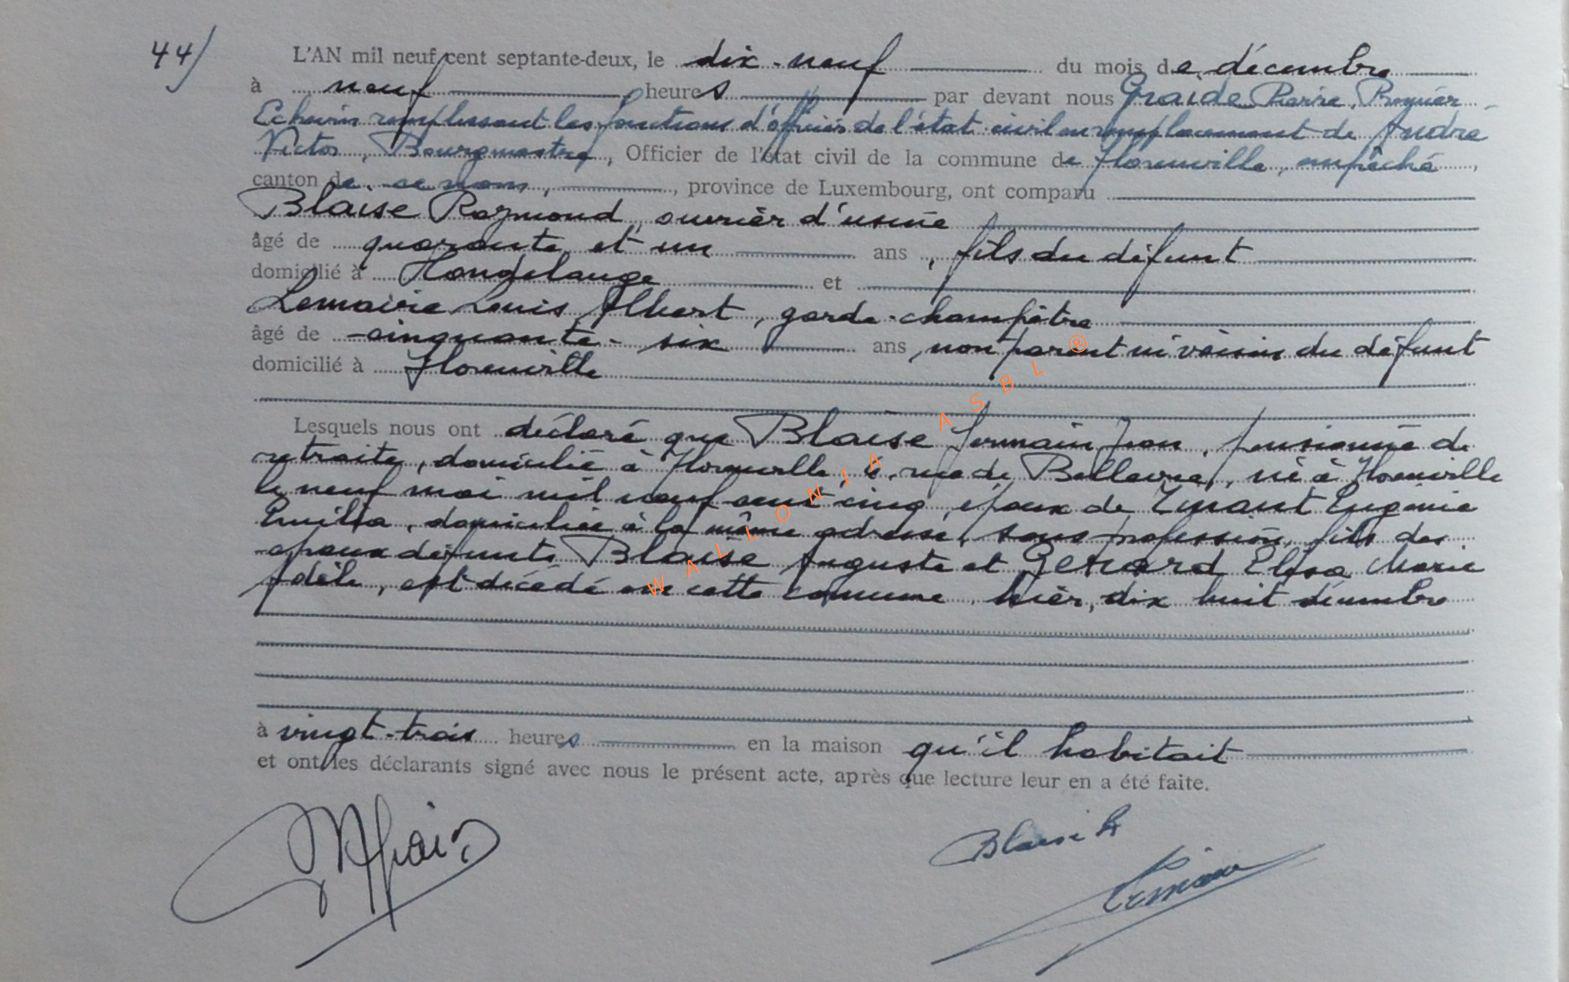 44/
L'AN mil neuf cent septante-deux, le dix-neuf du mois de décembre
à neuf heures par devant nous Graide Pierre, Premier
Echevin remplissant les fonctions d'officier de l'état civil en remplacement de André
Victor, Bourgmestre, Officier de l'état civil de la commune de Florenville, empêché,
canton de ce nom, province de Luxembourg, ont comparu
Blaise Raymond, ouvrier d'usine
âgé de quarante et un ans, fils du défunt
domicilié à Hondelange et
Lemaire Louis Albert, garde-champêtre
âgé de cinquante-six ans, non parent ni voisin du défunt
domicilié à Florenville
Lesquels nous ont déclaré que Blaise Germain Jean, pensionné de
retraite, domicilié à Florenville, 8, rue de Bellevue, né à Florenville
le neuf mai mil neuf cent cinq, époux de Evrard Eugénie
Emilia, domiciliée à la même adresse, sans profession, fils des
époux défunts Blaise Auguste et Gérard Elisa Marie
Adèle, est décédé en cette commune, hier, dix huit décembre
à vingt-trois heures en la maison qu'il habitait
et ont les déclarants signé avec nous le présent acte, après que lecture leur en a été faite.
Blaise R
Lemaire
WALLONIA ASBL ©